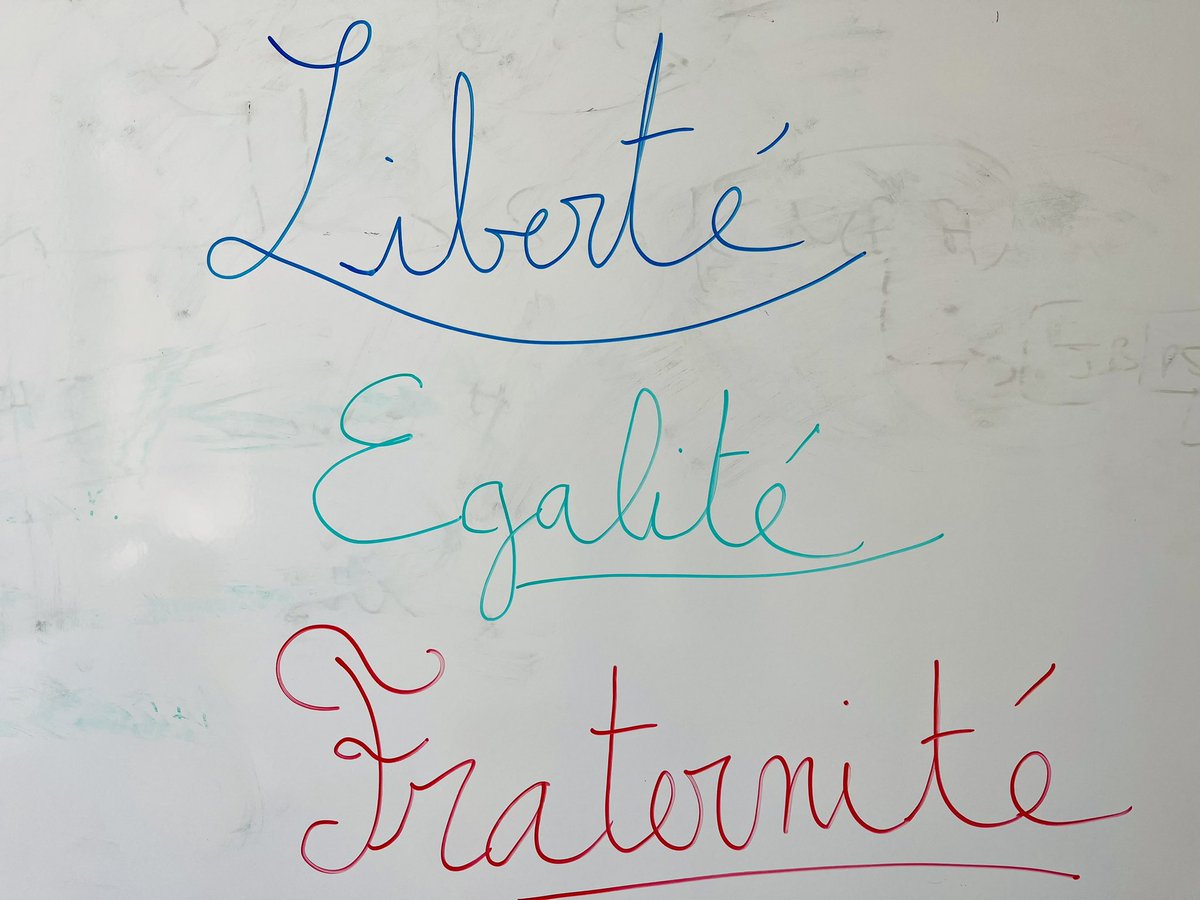 Liberté
Egalité
Fraternité